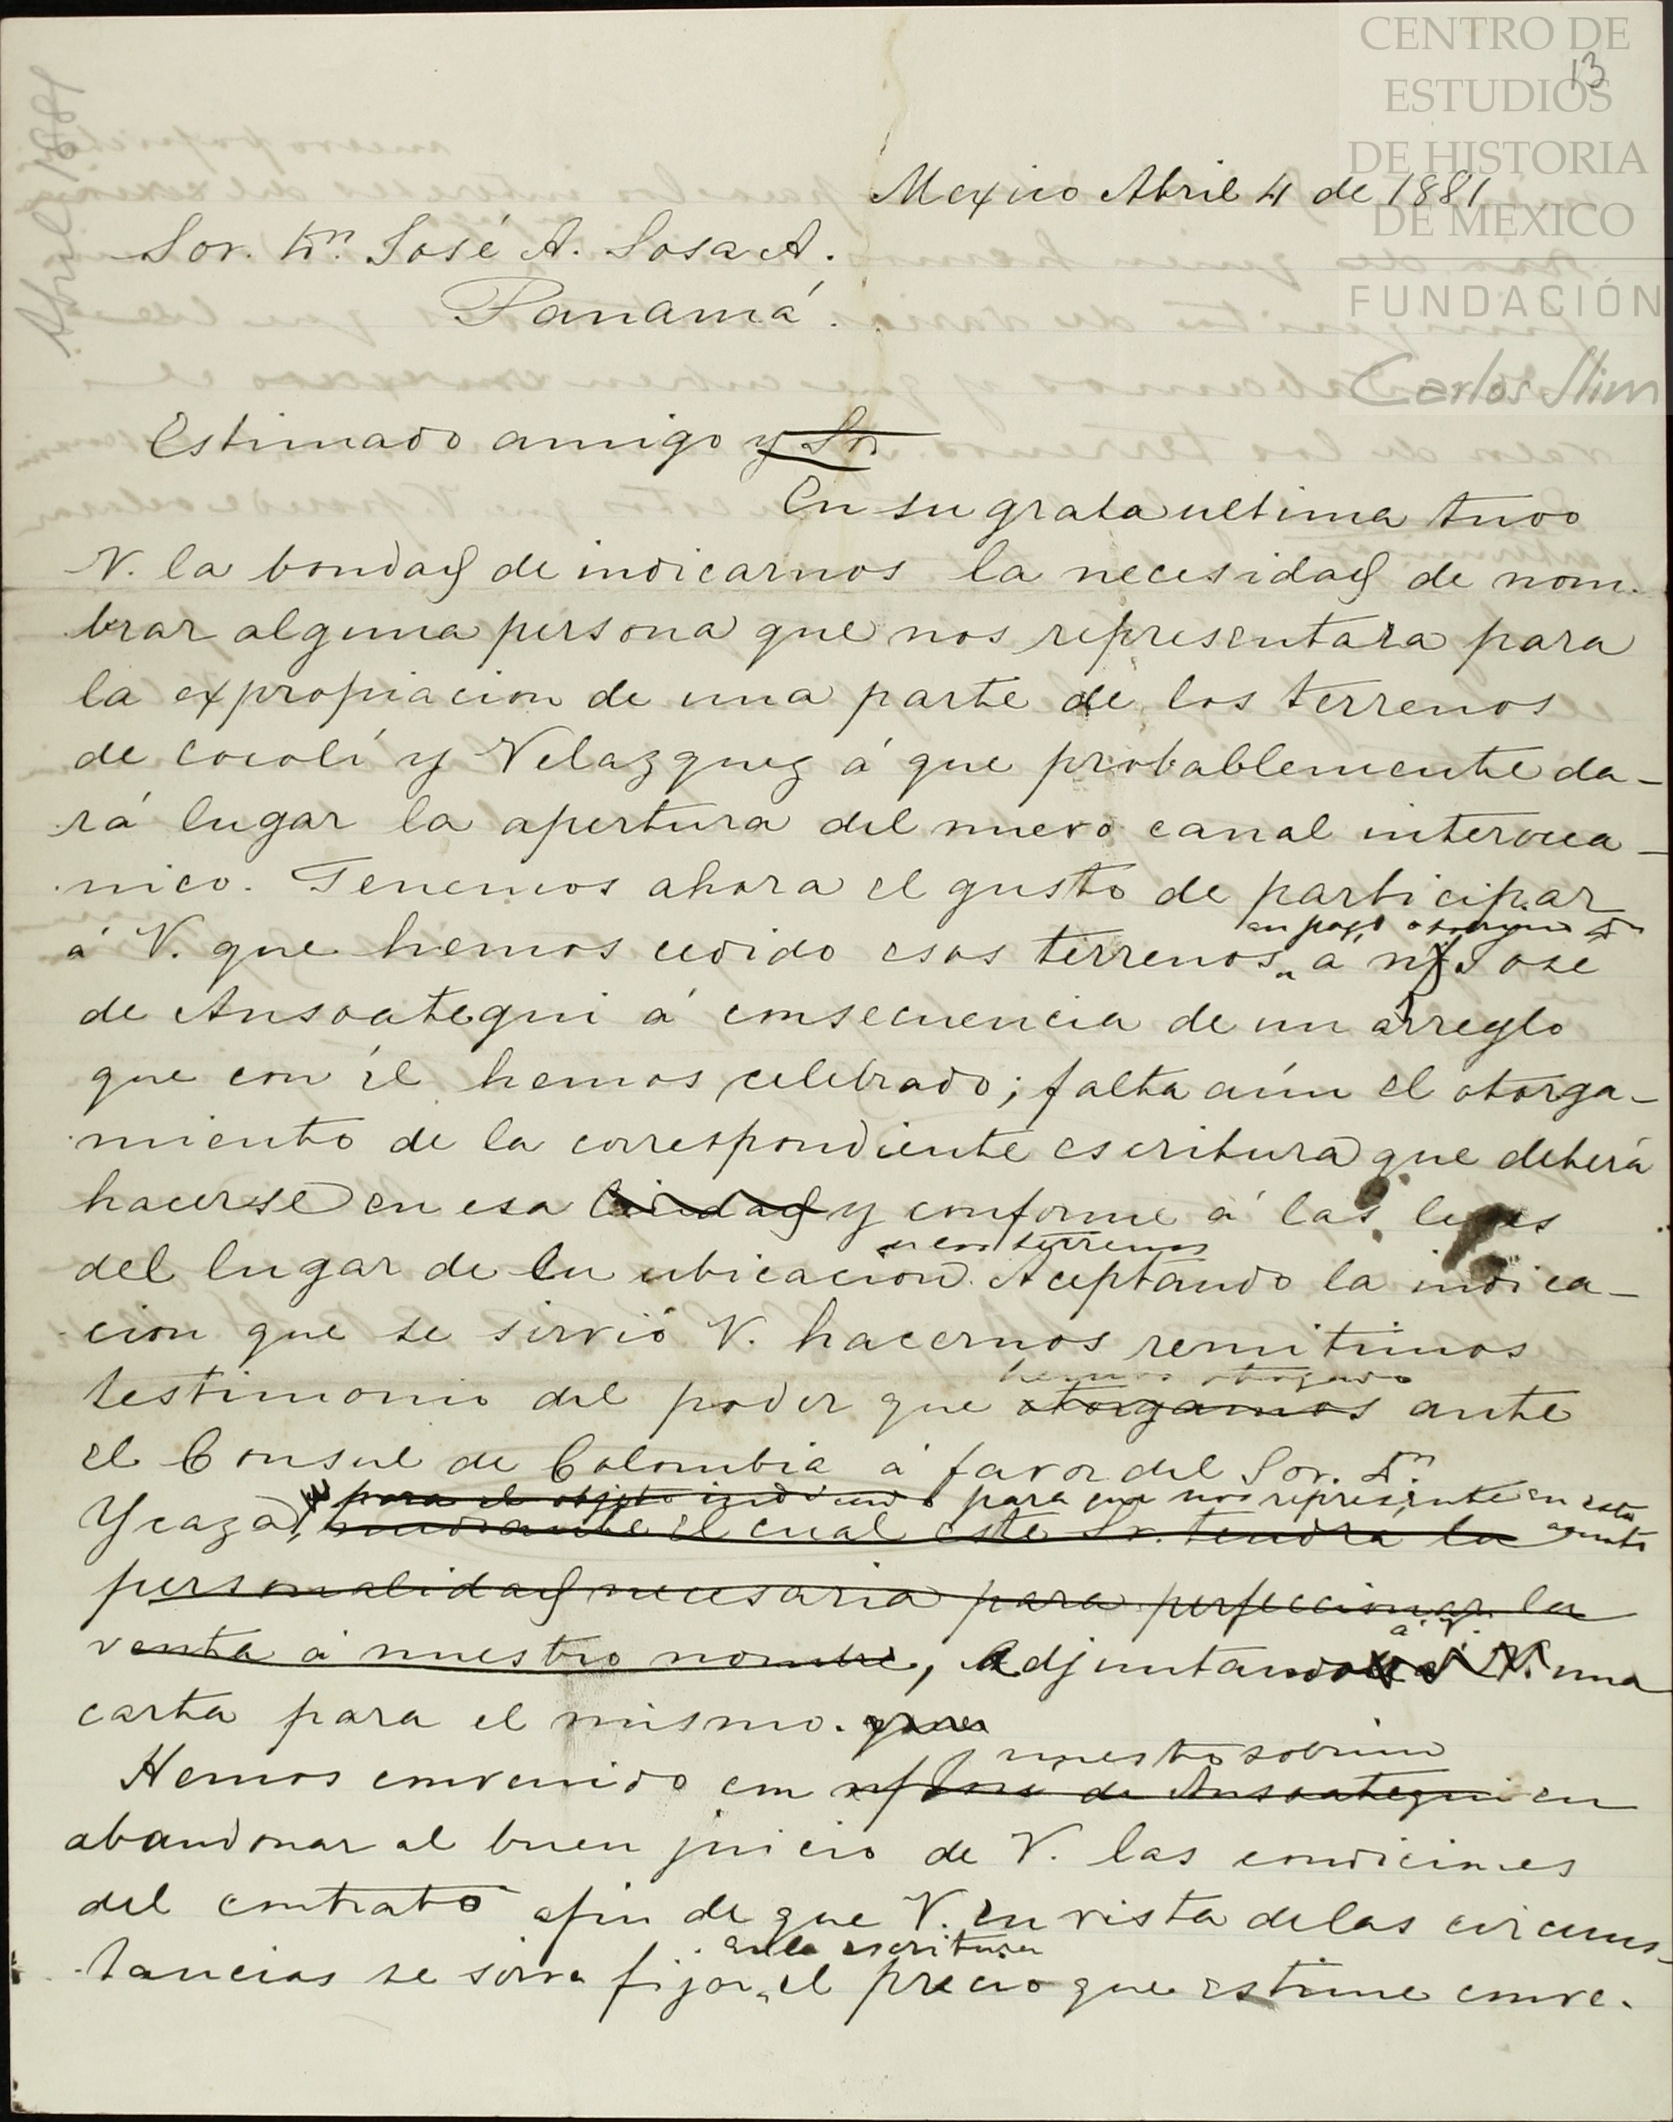 CENTRO DE
ESTUDIOS
DE HISTORIA
DE MEXICO
FUNDACIÓN
Carlos Slim
13
Abril 1881
Mexico Abril 4 de 1881
Sor. Dn. José A. Sosa A.
Panamá.
Estimado amigo y Sr.
En su grata ultima tuvo
V. la bondad de indicarnos la necesidad de nom-
brar alguna persona que nos representara para
la expropiacion de una parte de los terrenos
de Cocolí y Velazquez á que probablemente da-
rá lugar la apertura del nuevo canal interocea-
nico. Tenemos ahora el gusto de participar
en pago
á V. que hemos cedido esos terrenos á José
de Ansoategui á consecuencia de un arreglo
que con él hemos celebrado; falta aún el otorga-
miento de la correspondiente escritura que deberá
hacerse en esa Ciudad y conforme á las leyes
terrenos
del lugar de la ubicacion. Aceptando la indica-
cion que se sirvió V. hacernos remitimos
hemos otorgado
testimonio del poder que otorgamos ante
el Consul de Colombia á favor del Sor. Dn.
para el objeto indicado para que nos represente en este
asunto
Ycaza, mediante el cual este Sr. tendra la
personalidad necesaria para perfeccionar la
venta á nuestro nombre, Adjuntando
á V.
una
carta para el mismo. para
nuestro sobrino
Hemos convenido con José de Ansoategui en
abandonar al buen juicio de V. las condiciones
del contrato afin de que V. en vista de las circuns-
en la escritura
tancias se sirva fijar el precio que estime conve-